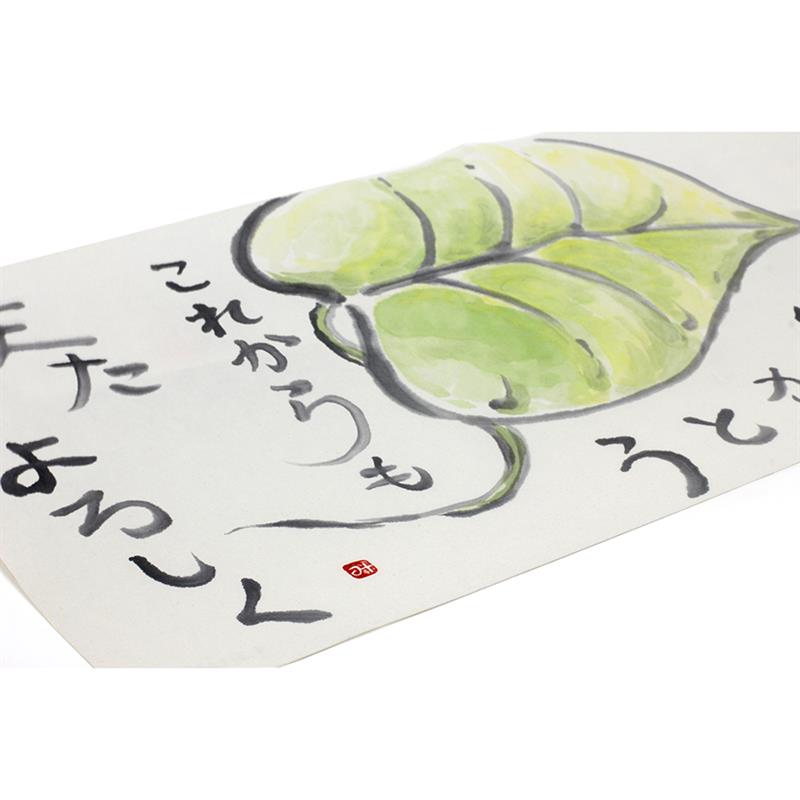 とう
これからも
またよろしく